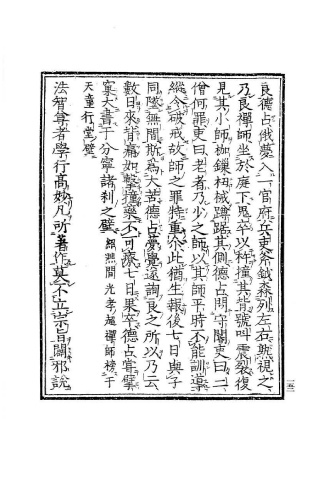 良德占俄夢入一官府兵吏斧鉞森列左右熟視之
乃良禪師坐於庭下鬼卒以秤撞其背號叫震裂復
見其小師枷鏁杻械蹲踞其側德占問守閽吏曰二
僧何罪吏曰老者乃少之師以其師平時不能訓導
縱令破戒故師之罪特重介此猶生報後七日與子
同墜無間斯為大苦德占夢覺遂詢良之所以乃云
數日來背膓如擊撞藥不可療七日果卒德占嘗擘
窠大書于分寧諸刹之壁 紹熙間光孝趯禪師榜于
天童行堂壁
法智尊者學行高妙凡所著作莫不立宗旨闢邪說